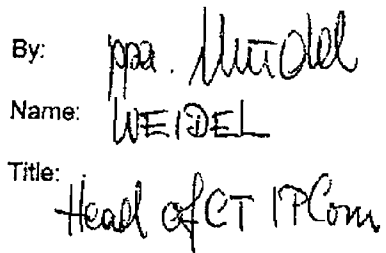 By: ppa. Weidel
Name: WEIDEL
Title: Head of CT IP Com